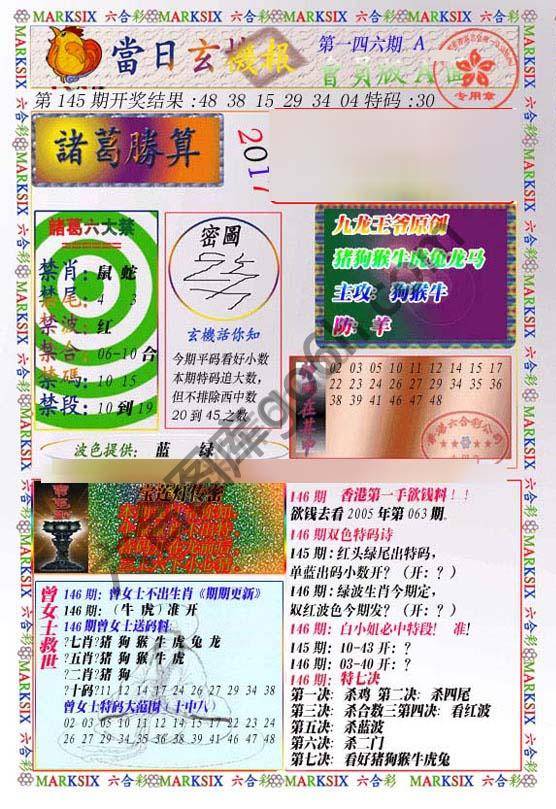 MARKSIX 六合彩 MARKSIX 六合彩 MARKSIX 六合彩 MARKSIX 六合彩
當日玄機報
第一四六期 A
會員版A面
专用章
第145期开奖结果:48 38 15 29 34 04特码:30
諸葛勝算
2017
諸葛六大禁
禁肖:鼠 蛇
禁尾: 4 3
禁波:红
禁合:06-10 合
禁碼:10 15
禁段:10到19
密圖
玄機話你知
今期平码看好小数
本期特码追大数,
但不排除西中数
20 到 45 之数
九龙王爷原创
猪狗猴牛虎兔龙马
主攻:狗猴牛
防:羊
02 03 05 10 11 12 14 15 17
22 23 24 26 27 29 34 35 36
38 39 41 46 47 48
波色提供: 蓝 绿
146期 香港第一手欲钱料!!
欲钱去看 2005 年第 063 期。
146 期双色特码诗
145 期:红头绿尾出特码,
单蓝出码小数开?(开:?)
146 期:绿波生肖今期定,
双红波色今期发?(开:?)
146 期:白小姐必中特段! 准!
145 期:10-43 开:?
146 期:03-40 开:?
146 期: 特七决
第一决:杀鸡 第二决:杀四尾
第三决:杀合数三第四决:看红波
第五决:杀蓝波
第六决:杀二门
第七决:看好猪狗猴牛虎兔
曾女士救世
146 期:曾女士不出生肖《期期更新》
146 期:(牛 虎)准 开
146期曾女士送码料
?七肖?猪 狗 猴 牛 虎 兔 龙
?五肖?猪 狗 猴 牛 虎
?二肖?猪 狗
?十码?11 12 14 17 24 26 27 29 34 38
曾女士特码大范围(十中八)
02 03 05 10 11 12 14 15 17 22 23 24
26 27 29 34 35 36 38 39 41 46 47 48
MARKSIX 六合彩 MARKSIX 六合彩 MARKSIX 六合彩 MARKSIX 六合彩